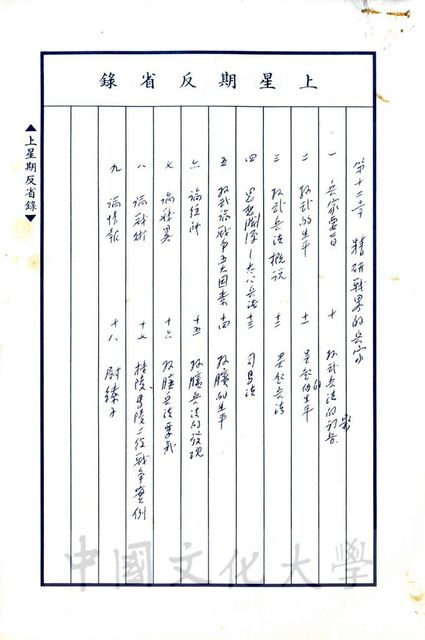 上星期反省錄
▲上星期反省錄▼
第十二章 精研戰畧的兵家
一 兵家要旨 十 孫武兵法的影
二 孫武的生平 十一 吳起的生平
三 孫武兵法概說 十二 吳起兵法
四 思想淵源—太公兵法 十三 司馬法
五 孫武論戰爭五大因素 十四 孫臏的生平
六 論 十五 孫臏兵法的發現
七 論 十六 孫臏兵法要義
八 論戰術 十七 桂陵、馬陵二役戰爭實例
九 論情報 十八 尉繚子
中國文化大學